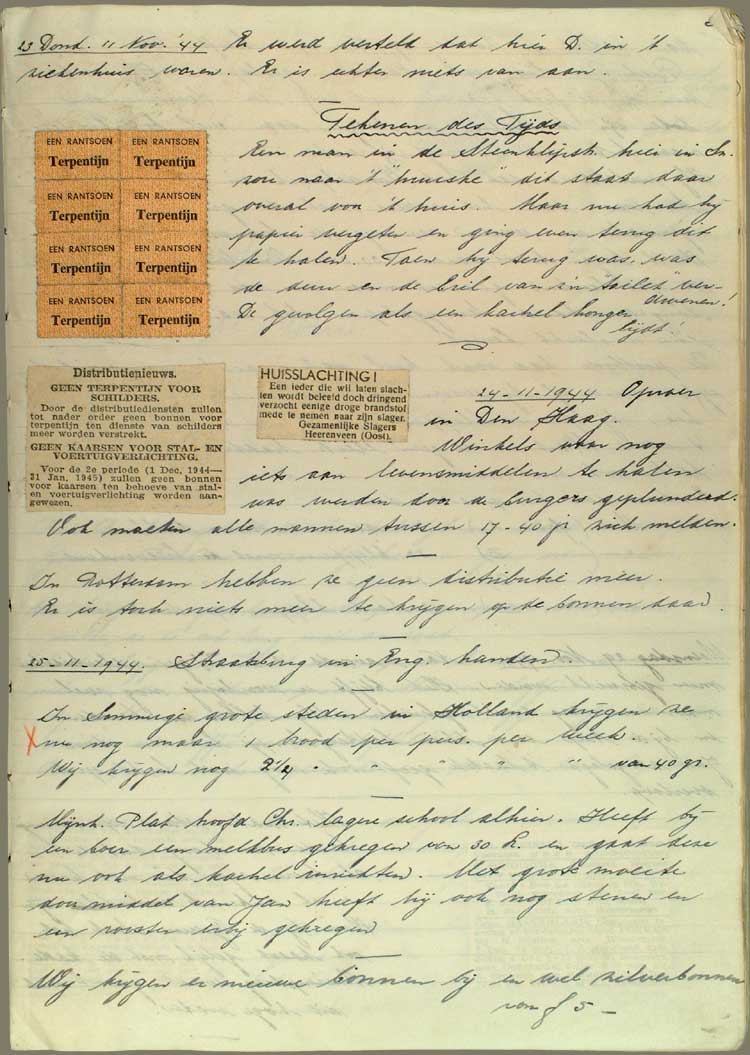 23 Dond. 11 Nov. '44 Er werd verteld dat hier D. in 't
ziekenhuis waren. Er is echter niets van aan.
Tekenen des Tijds
EEN RANTSOEN
Terpentijn
EEN RANTSOEN
Terpentijn
EEN RANTSOEN
Terpentijn
EEN RANTSOEN
Terpentijn
EEN RANTSOEN
Terpentijn
EEN RANTSOEN
Terpentijn
EEN RANTSOEN
Terpentijn
EEN RANTSOEN
Terpentijn
Een man in de hier in
zou naar 't "huiske" dit staat daar
overal voor 't huis. Maar nu had hij
papier vergeten en ging even terug dit
te halen. Toen hij terug was, was
de deur en de bril van z'n "toilet" ver-
dwenen!
De gevolgen als een kachel honger
lijdt!
Distributienieuws.
GEEN TERPENTIJN VOOR
SCHILDERS.
Door de distributiediensten zullen
tot nader order geen bonnen voor
terpentijn ten dienste van schilders
meer worden verstrekt.
GEEN KAARSEN VOOR STAL- EN
VOERTUIGVERLICHTING.
Voor de 2e periode (1 Dec. 1944—
31 Jan. 1945) zullen geen bonnen
voor kaarsen ten behoeve van stal-
en voertuigverlichting worden aan-
gewezen.
HUISSLACHTING!
Een ieder die wil laten slach-
ten wordt beleefd doch dringend
verzocht eenige droge brandstof
mede te nemen naar zijn slager.
Gezamenlijke Slagers
Heerenveen (Oost).
24-11-1944 Oproer
in Den Haag.
Winkels waar nog
iets aan levensmiddelen te halen
was werden door de burgers geplunderd.
Ook moeten alle mannen tussen 17-40 jr zich melden.
In Rotterdam hebben ze geen distributie meer.
Er is toch niets meer te krijgen op de bonnen daar.
25-11-1944. Straatsburg in Eng. handen.
In Sommige grote steden in Holland krijgen ze
X nu nog maar 1 brood per pers. per week.
Wij krijgen nog 2¼ " " " " " van 40 gr.
Mijnh. Plat hoofd Chr. lagere school alhier. Heeft bij
een boer een melkbus gekregen van 30 L. en gaat deze
nu ook als kachel inrichten. Met grote moeite
door middel van Jan heeft hij ook nog stenen en
een rooster erbij gekregen
Wij krijgen er nieuwe bonnen bij en wel zilverbonnen
van f 5 -